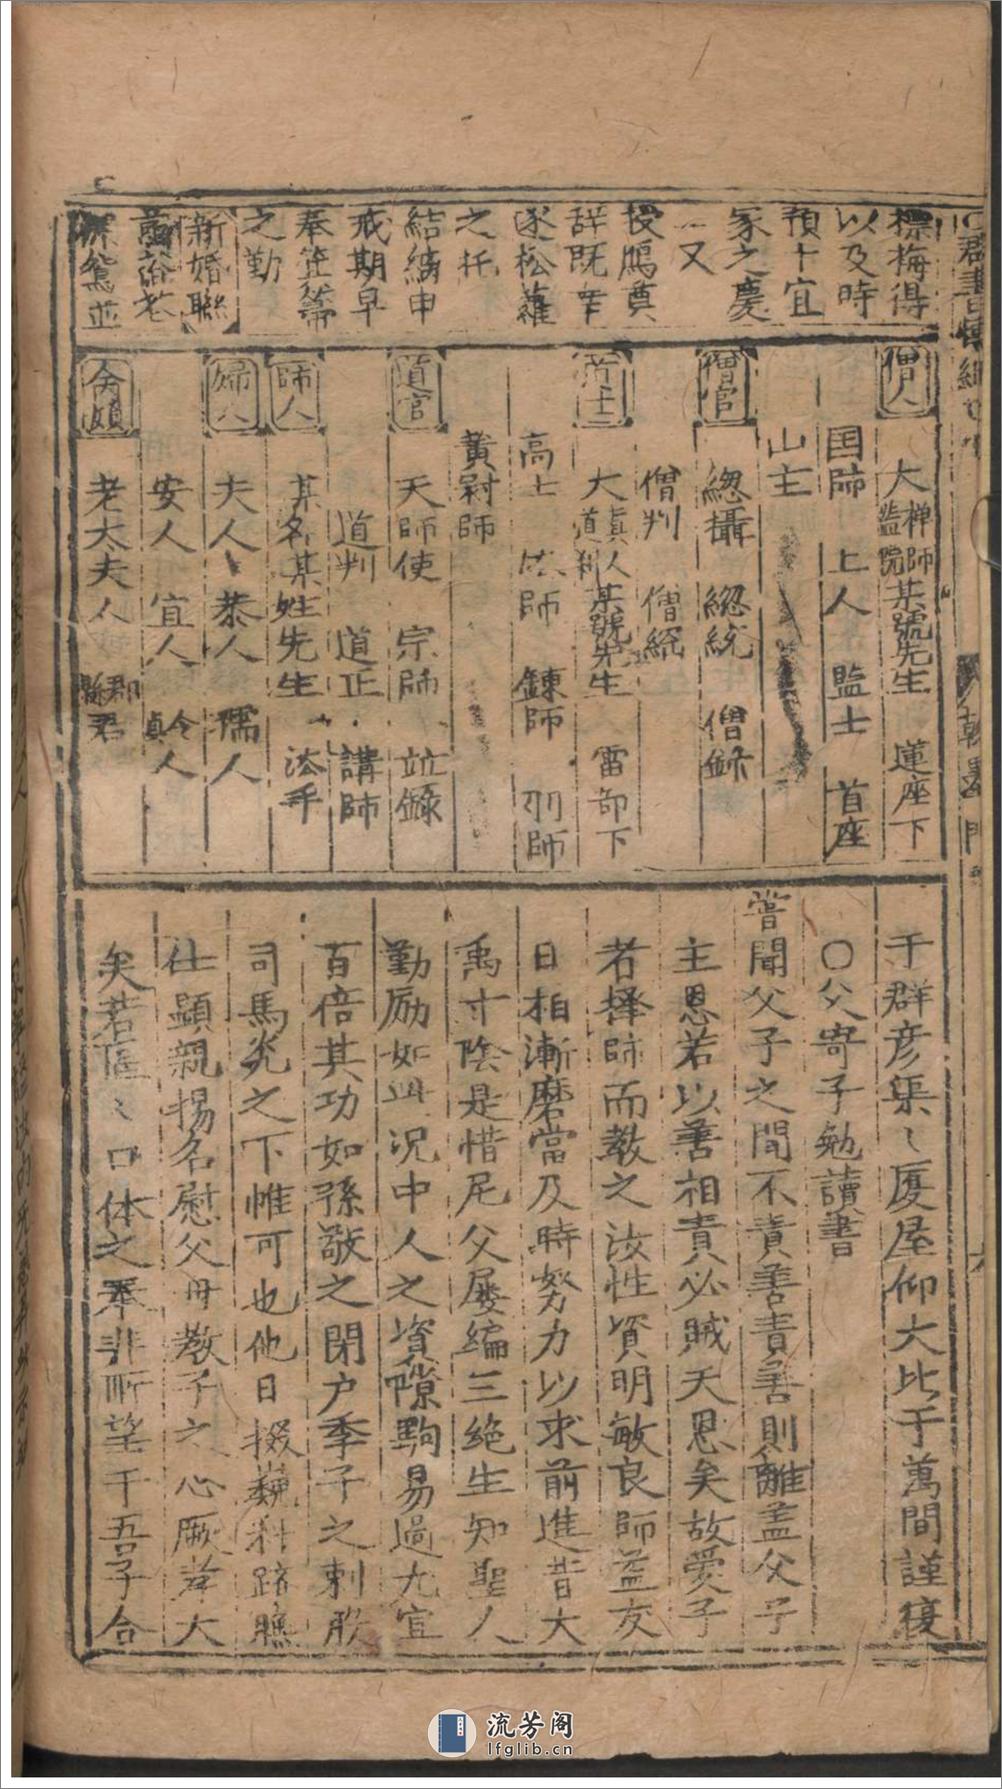 標梅得
以及時
預卜宜
家之慶
又
投鴈奠
辭既幸
遂松蘿
之托
結縭申
戒期早
奉
之勤
新婚聯
老
並
僧人
大禪師監院某號先生 蓮座下
国師 上人 監士 首座
山主
僧官
総攝 総統 僧錄
僧判 僧統
大真人道判某號先生 雷部下
高上 法師 鍊師 羽師
黃冠師
道官
天師使 宗師 錄
道判 道正 講師
師人
某名某姓先生 法手
婦人
夫人 恭人 孺人
安人 宜人 令人
老太夫人 郡君縣君
于群彦渠〻廈屋仰大比于萬間謹復
〇父寄子勉讀書
嘗聞父子之間不責善責善則離盖父子
主恩若以善相責必賊天恩矣故愛子
者擇師而教之汝性資明敏良師益友
日相漸磨當及時努力以求前進昔大
禹寸陰是惜尼父屡編三絶生知聖人
勤励如此况中人之資隙駒易過尤宜
百倍其功如孫敬之閉户季子之刺股
司馬光之下帷可也他日掇巍科躋膴
仕顕親揚名慰父母教子之心厥孝大
矣若區〻口体之奉非所望于吾子合
流芳阁
lfglib.cn